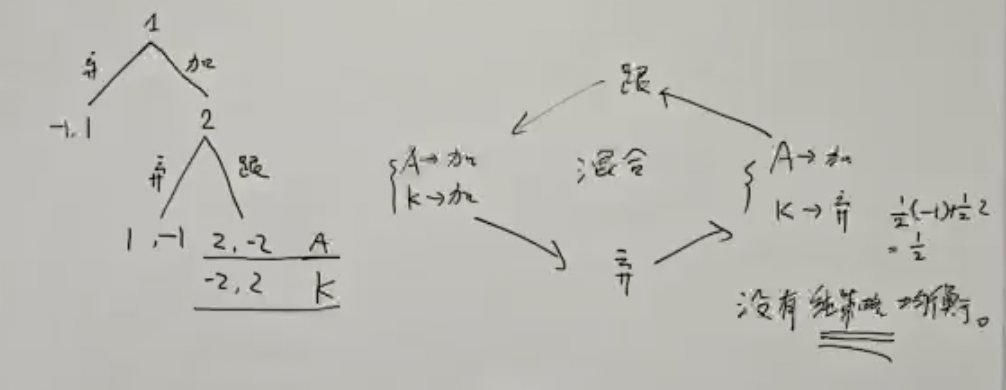 1
弃 加
-1, 1
2
弃 跟
1, -1 2, -2 A
-2, 2 K
跟
混合
A→加
K→加
弃
A→加
K→弃
½(-1)+½2
=½
没有纯策略均衡。